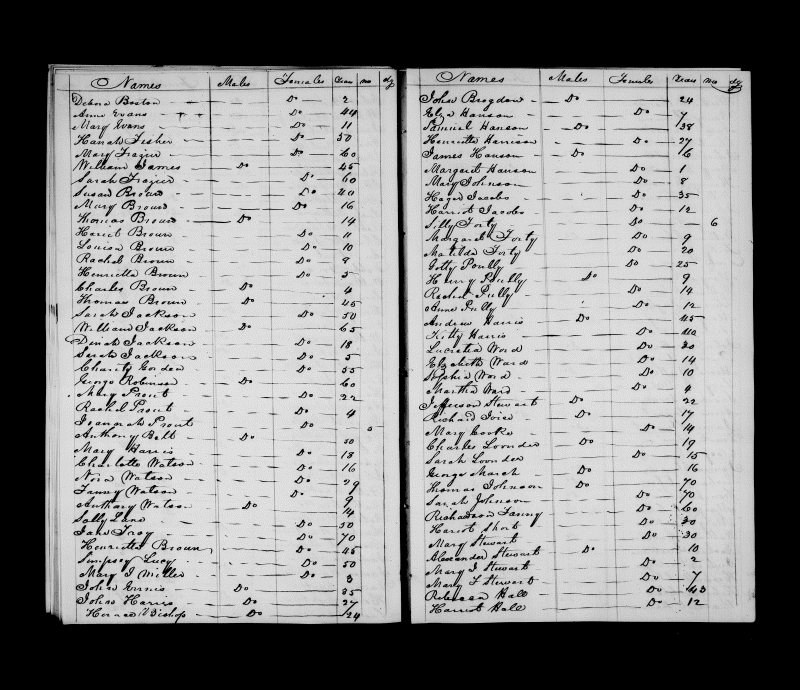 Names Males Females Years mo dy
Debora Boston Do 2
Anne Evans Do 44
Mary Evans Do 11
Hanah Fisher Do 50
Mary Frazier Do 60
William James Do 45
Sarah Frazier Do 60
Susan Brown Do 40
Mary Brown Do 16
Thomas Brown Do 14
Hariet Brown Do 11
Louisa Brown Do 10
Rachel Brown Do 8
Henrietta Brown Do 5
Charles Brown Do 4
Thomas Brown Do 45
Sarah Jackson Do 50
William Jackson Do 65
Dinah Jackson Do 18
Sarah Jackson Do 5
Charity Gordon Do 55
George Robinson Do 60
Mary Prout Do 22
Rachel Prout Do 4
Prout Do
Anthony Belt Do 50
Mary Harris Do 18
Charlotte Watson Do 16
Nora Watson Do 29
Fanny Watson Do 9
Anthony Watson Do 14
Sally Lane Do 50
Jane Troy Do 70
Henrietta Brown Do 45
Lucy Do 50
Mary J Miller Do 3
John Do 35
John Harris Do 27
Bishop Do 24
Names Males Females Years mo dy
John Brogdon Do 24
Eliza Hanson Do 7
Samuel Hanson Do 38
Henrietta Harrison Do 27
James Hanson Do 6
Margaret Hanson Do 1
Mary Johnson Do 8
Hagar Jacobs Do 35
Harriot Jacobs Do 12
Forty Do 6
Margaret Forty Do 9
Matilda Forty Do 20
Do 25
Henry Do 9
Rachel Do 14
Anne Do 12
Andrew Harris Do 45
Kitty Harris Do 40
Lucretia Ward Do 30
Elizabeth Ward Do 14
Sophia Ward Do 10
Martha Ward Do 4
Jefferson Stewart Do 22
Richard Do 17
Mary Cooke Do 14
Charles Do 19
Sarah Do 15
George March Do 16
Thomas Johnson Do 70
Sarah Johnson Do 70
Richardson Fanny Do 60
Hariot Short Do 30
Mary Stewart Do 30
Alexander Stewart Do 10
Mary J Stewart Do 2
Mary F Stewart Do 7
Rebecca Hall Do 40
Harriot Hall Do 12